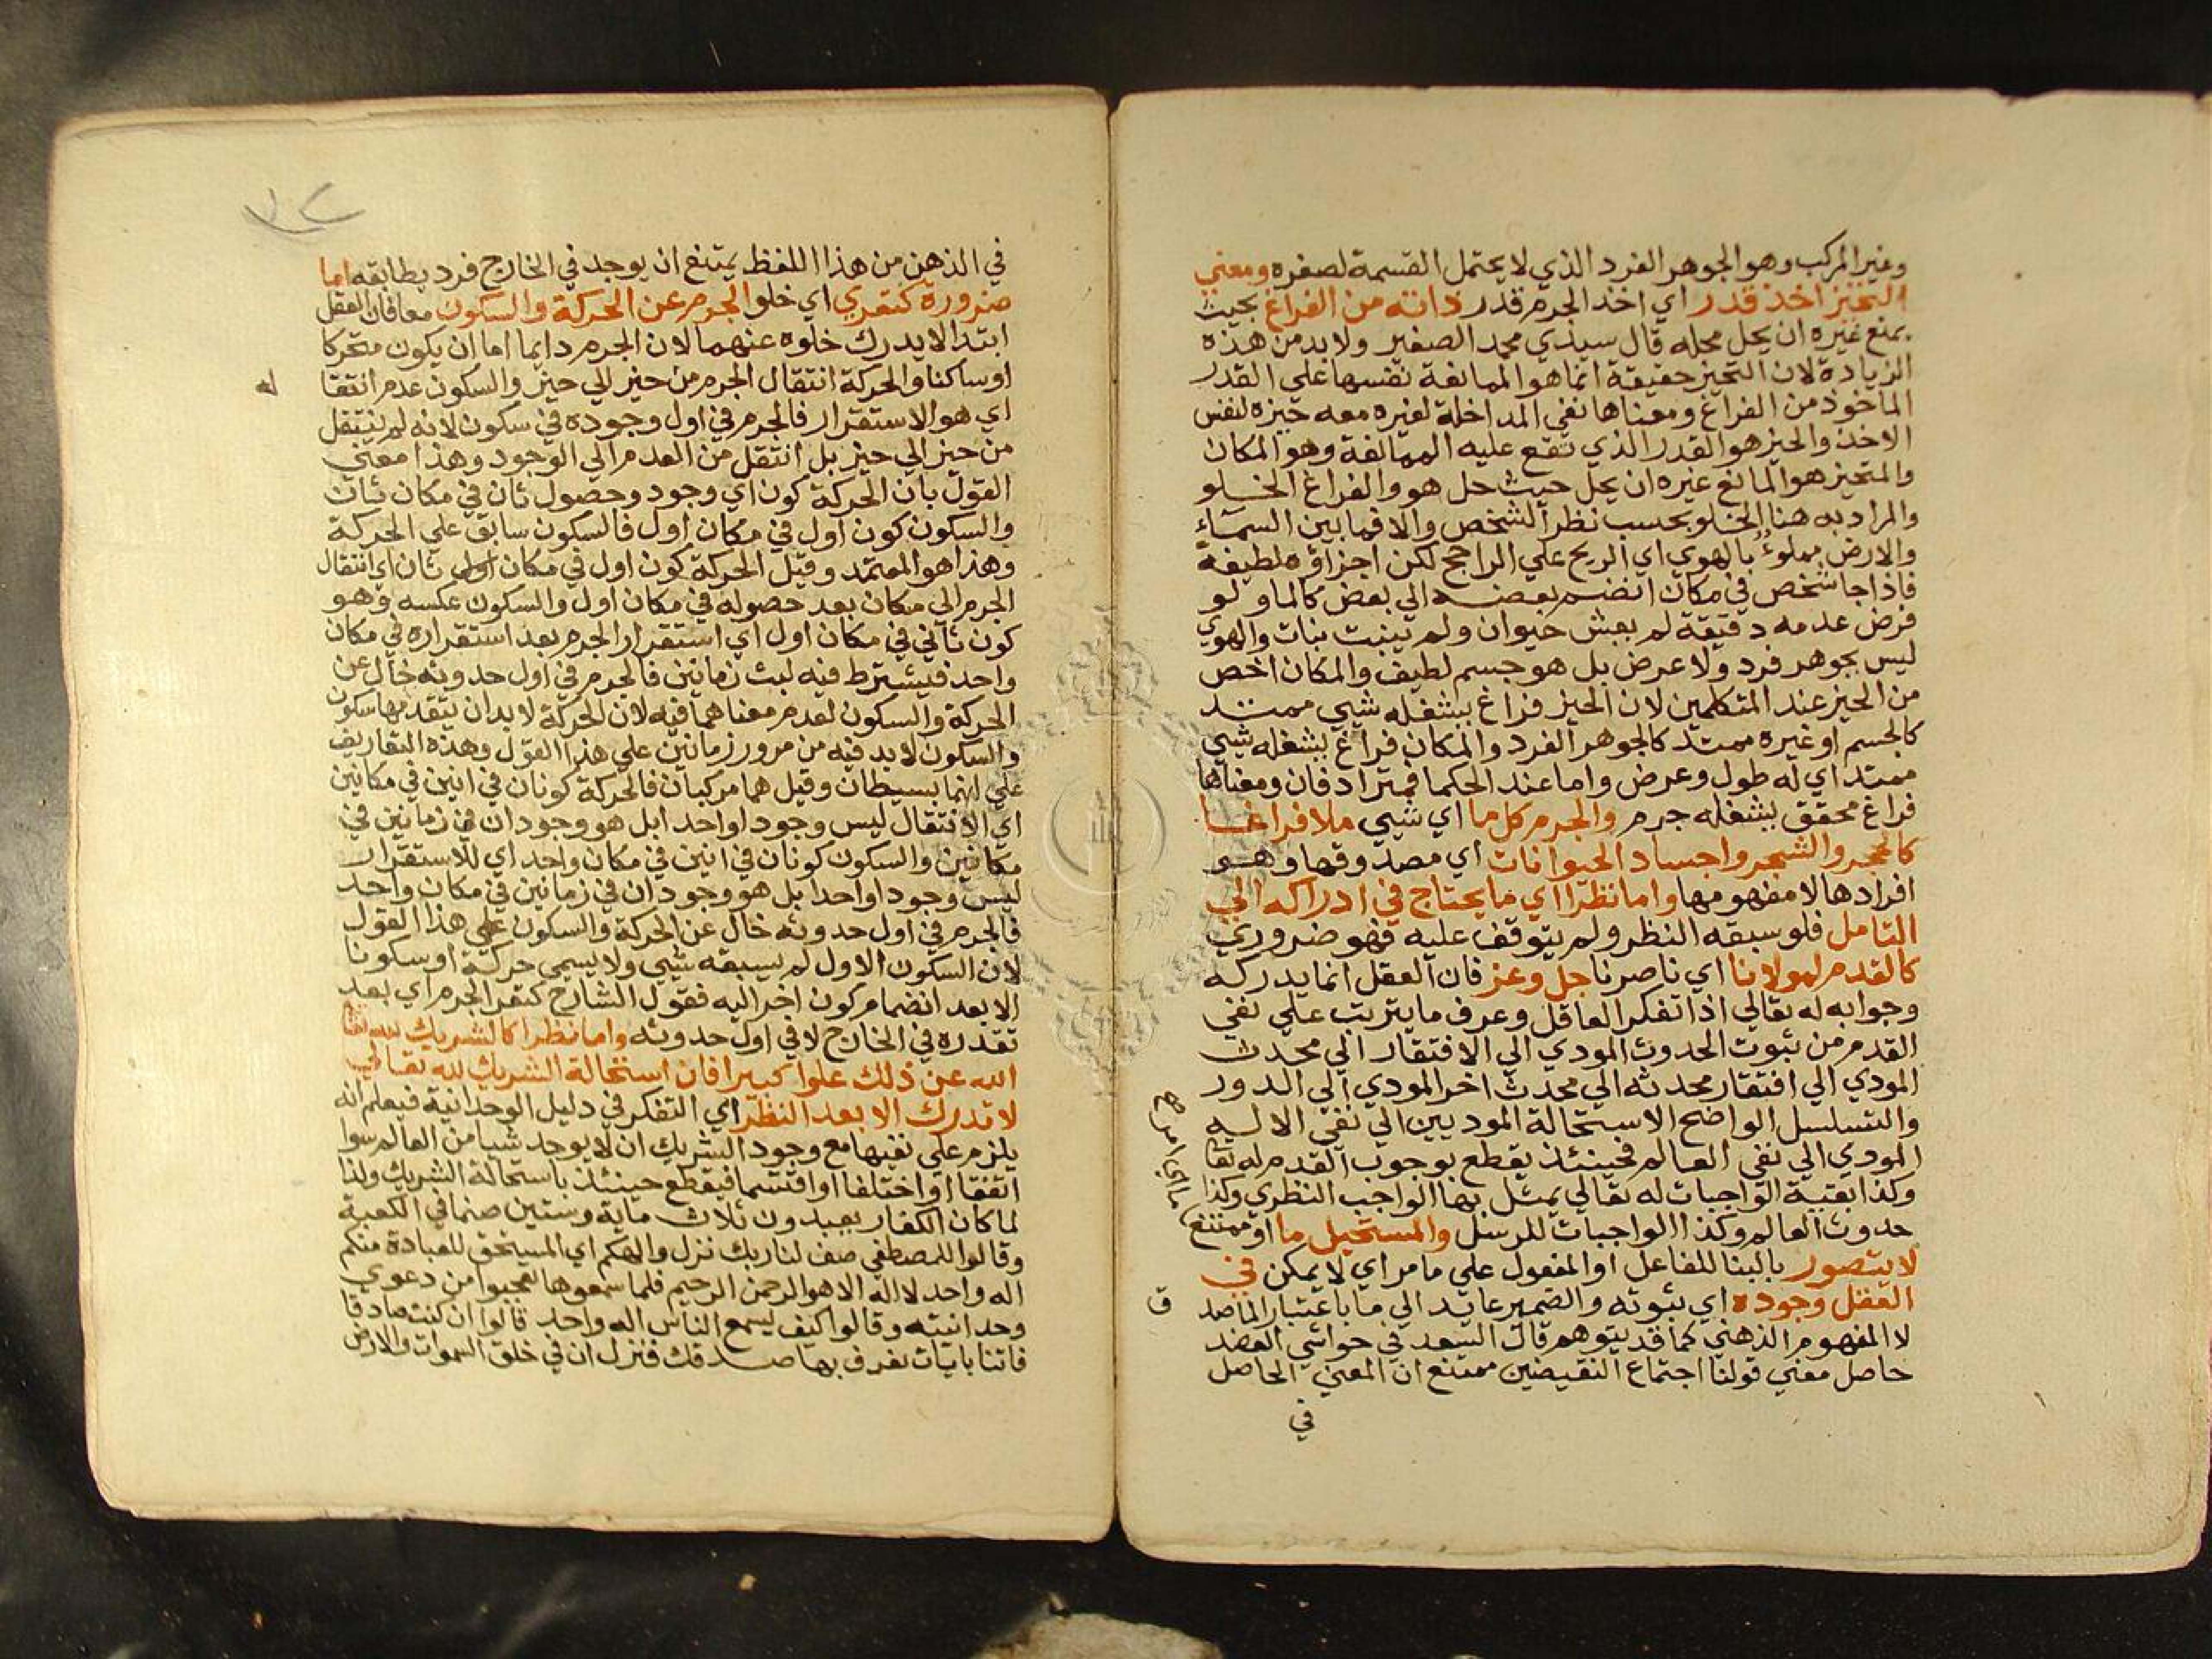 وغير المركب وهو الجوهر الفرد الذي لا يحتمل القسمة لصغره ومعني
التحيز اخذ قدر اي اخذ الجرم قدر ذاته من الفراغ بحيث
يمنع غيره ان يحل محله قال سيدي محمد الصغير ولابد من هذه
الزيادة لان التحيز حقيقة انما هو الممانعة نفسها علي القدر
الماخوذ من الفراغ ومعناها نفي المداخلة لغيره معه حيزه لنفس
الاخذ والحيز هو القدر الذي تقع عليه الممانعة وهو المكان
والمتحيز هو المانع غيره ان يحل حيث حل هو والفراغ الخلو
والمراد به هنا الخلو بحسب نظر الشخص والا فما بين السماء
والارض مملوء بالهوي اي الريح علي الراجح لكن اجزاؤه لطيفة
فاذا جا شخص في مكان انضم بعضه الي بعض كالما ولو
فرض عدمه دقيقة لم يعش حيوان ولم ينبت نبات والهوي
ليس بجوهر فرد ولا عرض بل هو جسم لطيف والمكان اخص
من الحيز عند المتكلمين لان الحيز فراغ يشغله شيي ممتد
كالجسم او غيره ممتد كالجوهر الفرد والمكان فراغ يشغله شيي
ممتد اي له طول وعرض واما عند الحكما فمترادفان ومعناهما
فراغ محقق يشغله جرم والجرم كل ما اي شيي ملا فراغا
كالحجر والشجر واجساد الحيوانات اي مصدوقها وهو
افرادها لا مفهومها واما نظرا اي ما يحتاج في ادراكه الي
التامل فلو سبقه النظر ولم يتوقف عليه فهو ضروري
كالقدم لمولانا اي ناصرنا جل وعز فان العقل انما يدركه
وجوابه له تعالي اذا تفكر العاقل وعرف ما يترتب علي نفي
القدم من ثبوت الحدوث المودي الي الافتقار الي محدث
المودي الي افتقار محدثه الي محدث اخر المودي الي الدور
والتسلسل الواضح الاستحالة الموديين الي نفي الاليه
المودي الي نفي العالم فحينئذ يقطع بوجوب القدم له تعا
وكذا بقية الواجبات له تعالي يمثل بها الواجب النظري وكذا
حدوث العالم وكذا الواجبات للرسل والمستحيل ما او ممتنع
ما اي امر صح
لا يتصور بالبنا للفاعل او المفعول علي ما مر اي لا يمكن في
العقل وجوده اي ثبوته والضمير عايد الي ما باعتبار الماصد
ق
لا المفهوم الذهني كما قد يتوهم قال السعد في حواشي العضد
حاصل معني قولنا اجتماع النقيضين ممتنع ان المعني الحاصل
في
١٢
في الذهن من هذا اللفظ يمتنع ان يوجد في الخارج فرد يطابقه اما
ضرورة كتعري اي خلو الجرم عن الحركة والسكون معا فان العقل
ابتدا لا يدرك خلوه عنهما لان الجرم دايما اما ان يكون متحركا
او ساكنا والحركة انتقال الجرم من حيز الي حيز والسكون عدم انتقا
له
اي هو الاستقرار فالجرم في اول وجوده في سكون لانه لم ينتقل
من حيز الي حيز بل انتقل من العدم الي الوجود وهذا معني
القول بان الحركة كون اي وجود وحصول ثان في مكان ثان
والسكون كون اول في مكان اول فالسكون سابق علي الحركة
وهذا هو المعتمد وقيل الحركة كون اول في مكان ثان اي انتقال
الجرم الي مكان بعد حصوله في مكان اول والسكون عكسه وهو
كون ثاني في مكان اول اي استقرار الجرم بعد استقراره في مكان
واحد فيشترط فيه لبث زمانين فالجرم في اول حدوثه خال عن
الحركة والسكون لعدم معناهما فيه لان الحركة لابد ان يتقدمها سكون
والسكون لابد فيه من مرور زمانين علي هذا القول وهذه التعاريف
علي انهما بسيطان وقيل هما مركبان فالحركة كونان في انين في مكانين
اي الانتقال ليس وجودا واحدا بل هو وجودان في زمانين في
مكانين والسكون كونان في انين في مكان واحد اي الاستقرار
ليس وجودا واحدا بل هو وجودان في زمانين في مكان واحد
فالجرم في اول حدوثه خال عن الحركة والسكون علي هذا القول
لان السكون الاول لم يسبقه شيي ولا يسمي حركة او سكونا
الا بعد انضمام كون اخر اليه فقول الشارح كتعر الجرم اي بعد
تقدره في الخارج لا في اول حدوثه واما نظرا كالشريك لله تعا
الله عن ذلك علوا كبيرا فان استحالة الشريك لله تعالي
لا تدرك الا بعد النظر اي التفكر في دليل الوحدانية فيعلم انه
يلزم علي نفيها مع وجود الشريك ان لا يوجد شيا من العالم سوا
اتفقا او اختلفا او اقتسما فيقطع حينئذ باستحالة الشريك ولذا
لما كان الكفار يعبدون ثلاث ماية وستين صنما في الكعبة
وقالوا للمصطفي صف لنا ربك نزل والهكم اي المستحق للعبادة منكم
اله واحد لا اله الا هو الرحمن الرحيم فلما سمعوها تعجبوا من دعوي
وحدانيته وقالوا كيف يسمع الناس اله واحد قالوا ان كنت صادقا
فاتنا بايات نعرف بها صدقك فنزل ان في خلق السموات والارض